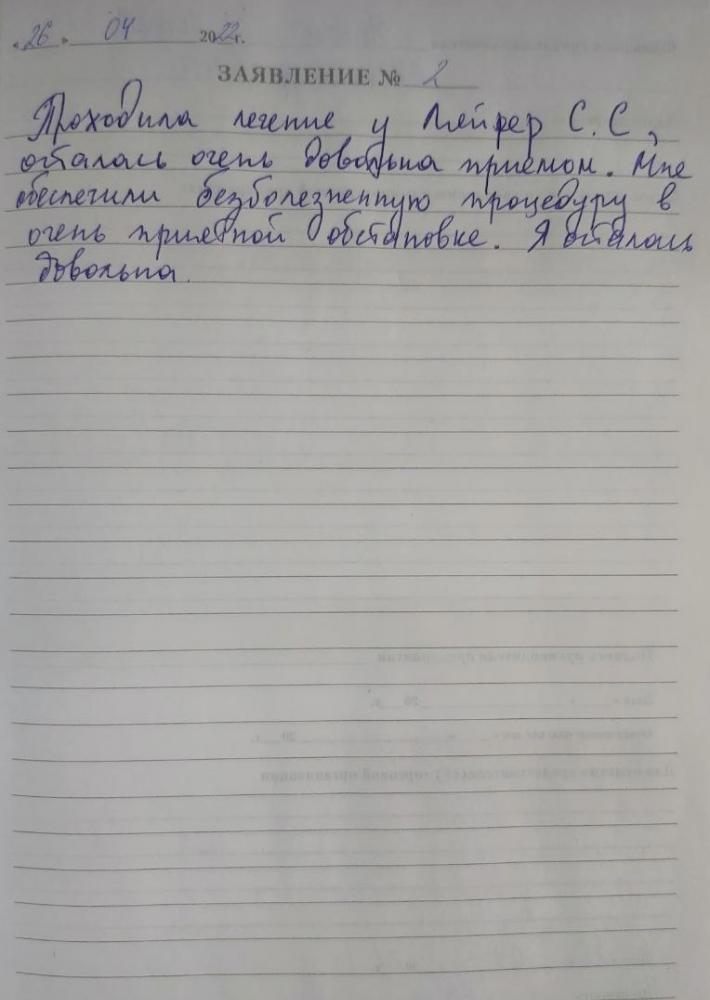 «26» 04 2022г.
ЗАЯВЛЕНИЕ № 2
Проходила лечение у Мейрер С.С,
осталась очень довольна приемом. Мне
обеспечили безболезненную процедуру в
очень приятной обстановке. Я осталась
довольна.